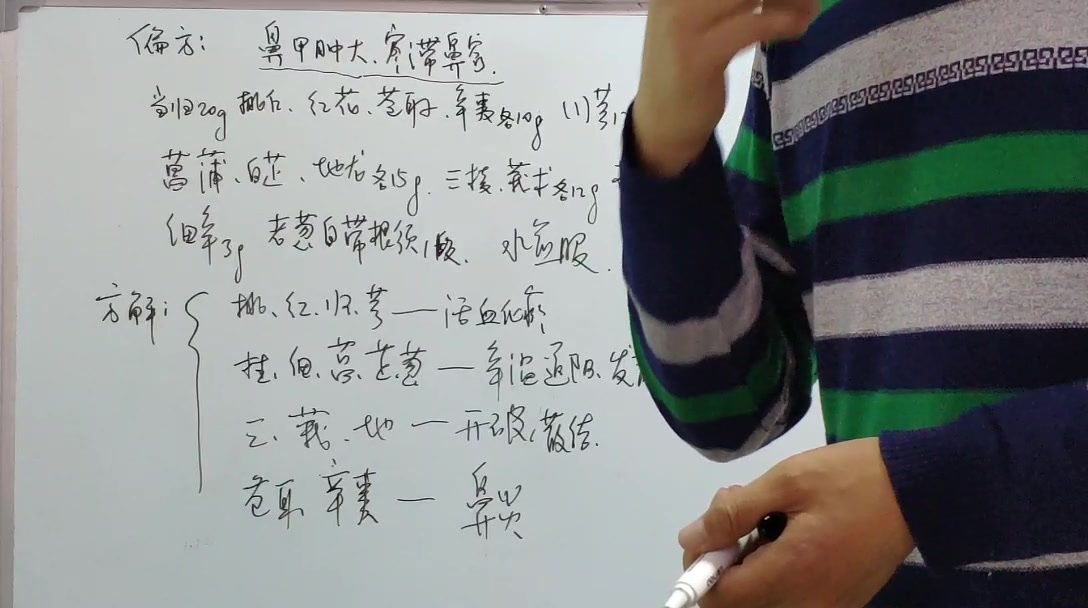 偏方: 鼻甲肿大、寒滞鼻窍.
当归20g 桃仁、红花、苍耳子、辛夷各10g 川芎
菖蒲、白芷、地龙各15g. 三棱、莪术各12g
细辛3g 老葱白带根须1段. 水煎服.
方解: 桃、红、归、芎—活血化瘀
桂、细、菖、芷、葱—辛温通阳、发
三、莪、地—开破散结.
苍耳 辛夷—鼻炎